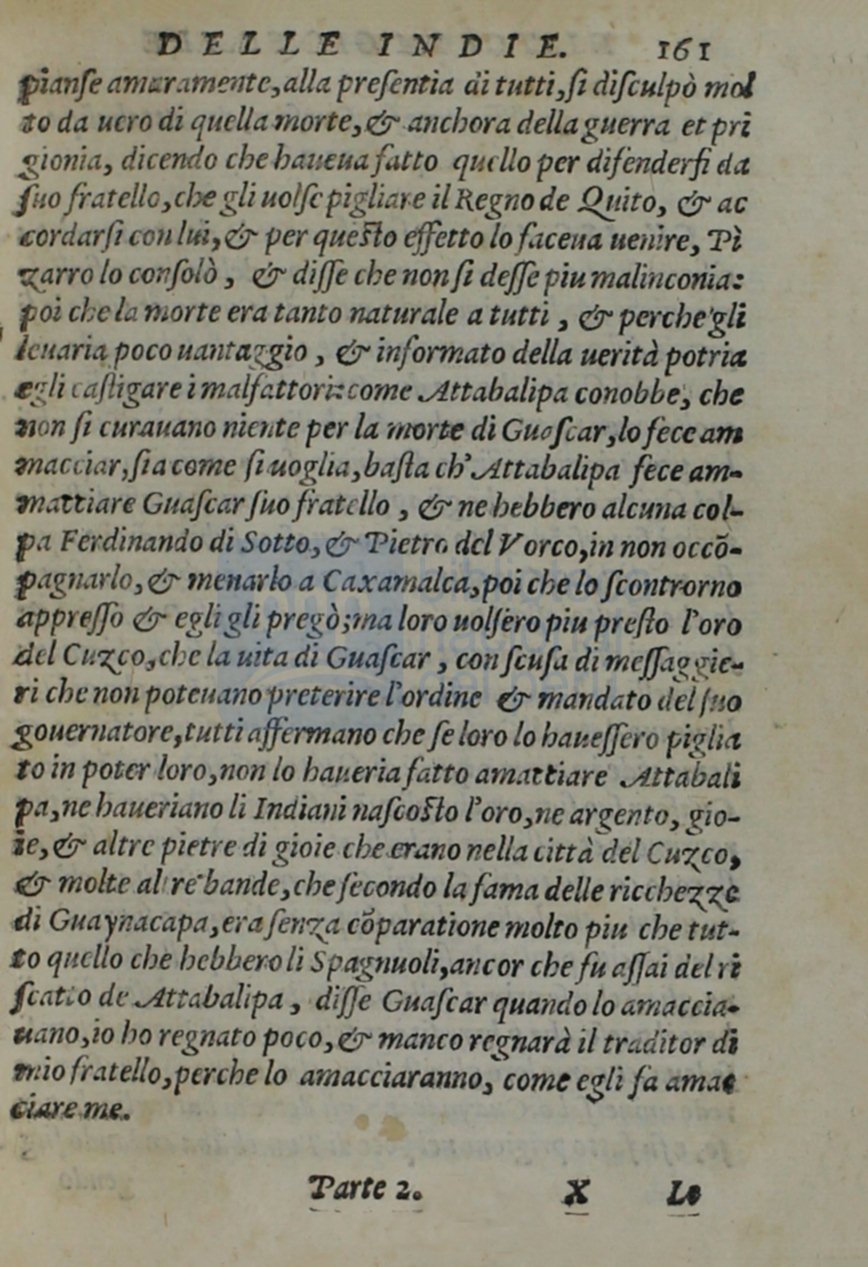 DELLE INDIE. 161
pianſe amaramente, alla preſentia di tutti, ſi diſculpò mol
to da uero di quella morte, & anchora della guerra et pri
gionia, dicendo che haueua fatto quello per difenderſi da
ſuo fratello, che gli uolſe pigliare il Regno de Quito, & ac
cordarſi con lui, & per queſto effetto lo faceua uenire, Pi
zarro lo conſolò, & diſſe che non ſi deſſe piu malinconia:
poi che la morte era tanto naturale a tutti, & perche gli
leuaria poco uantaggio, & informato della uerità potria
egli caſtigare i malfattori: come Attabalipa conobbe, che
non ſi curauano niente per la morte di Guaſcar, lo fece am
macciar, ſia come ſi uoglia, baſta ch' Attabalipa fece am-
mattiare Guaſcar ſuo fratello, & ne hebbero alcuna col-
pa Ferdinando di Sotto, & Pietro del Vorco, in non occõ-
pagnarlo, & menarlo a Caxamalca, poi che lo ſcontrorno
appreſſo & egli gli pregò; ma loro uolſero piu preſto l'oro
del Cuzco, che la uita di Guaſcar, con ſcuſa di meſſaggie-
ri che non poteuano preterire l'ordine & mandato del ſuo
gouernatore, tutti affermano che ſe loro lo haueſſero piglia
to in poter loro, non lo haueria fatto amattiare Attabali
pa, ne haueriano li Indiani naſcoſto l'oro, ne argento, gio-
ie, & altre pietre di gioie che erano nella città del Cuzco,
& molte altre bande, che ſecondo la fama delle ricchezze
di Guaynacapa, era ſenza cõparatione molto piu che tut-
to quello che hebbero li Spagnuoli, ancor che fu aſſai del ri
ſcatto de Attabalipa, diſſe Guaſcar quando lo amaccia-
uano, io ho regnato poco, & manco regnarà il traditor di
mio fratello, perche lo amacciaranno, come egli fa amac
ciare me.
Parte 2. X Le